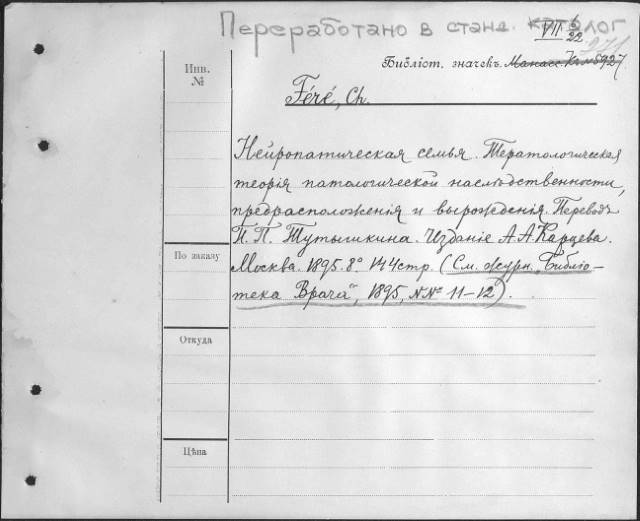 Переработано в станд. каталог
VII 6/22
271
Библіот. значекъ. Манасс. 5927
Инв.
№
Féré, Ch.
Нейропатическая семья. Тератологическая
теорія патологической наслѣдственности,
предрасположенія и вырожденія. Переводъ
Н. П. Тутышкина. Изданіе А. А. Карцева.
По заказу
Москва. 1895. 8° 144 стр. (См. журн. „Библіо-
тека Врача", 1895, №№ 11-12).
Откуда
Цѣна